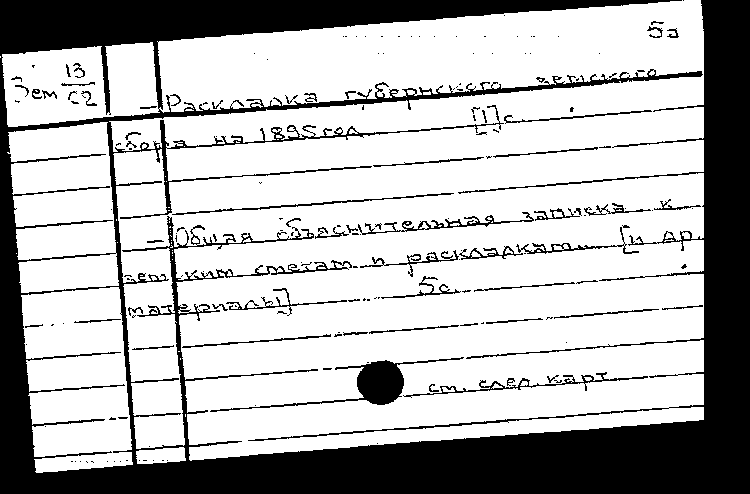 5а
Зем 13/С2
— Раскладка губернского земского
сбора на 1895 год [1] с.
— Общая объяснительная записка к
земским сметам и раскладкам... [и др.
материалы] 5с.
см. след. карт.